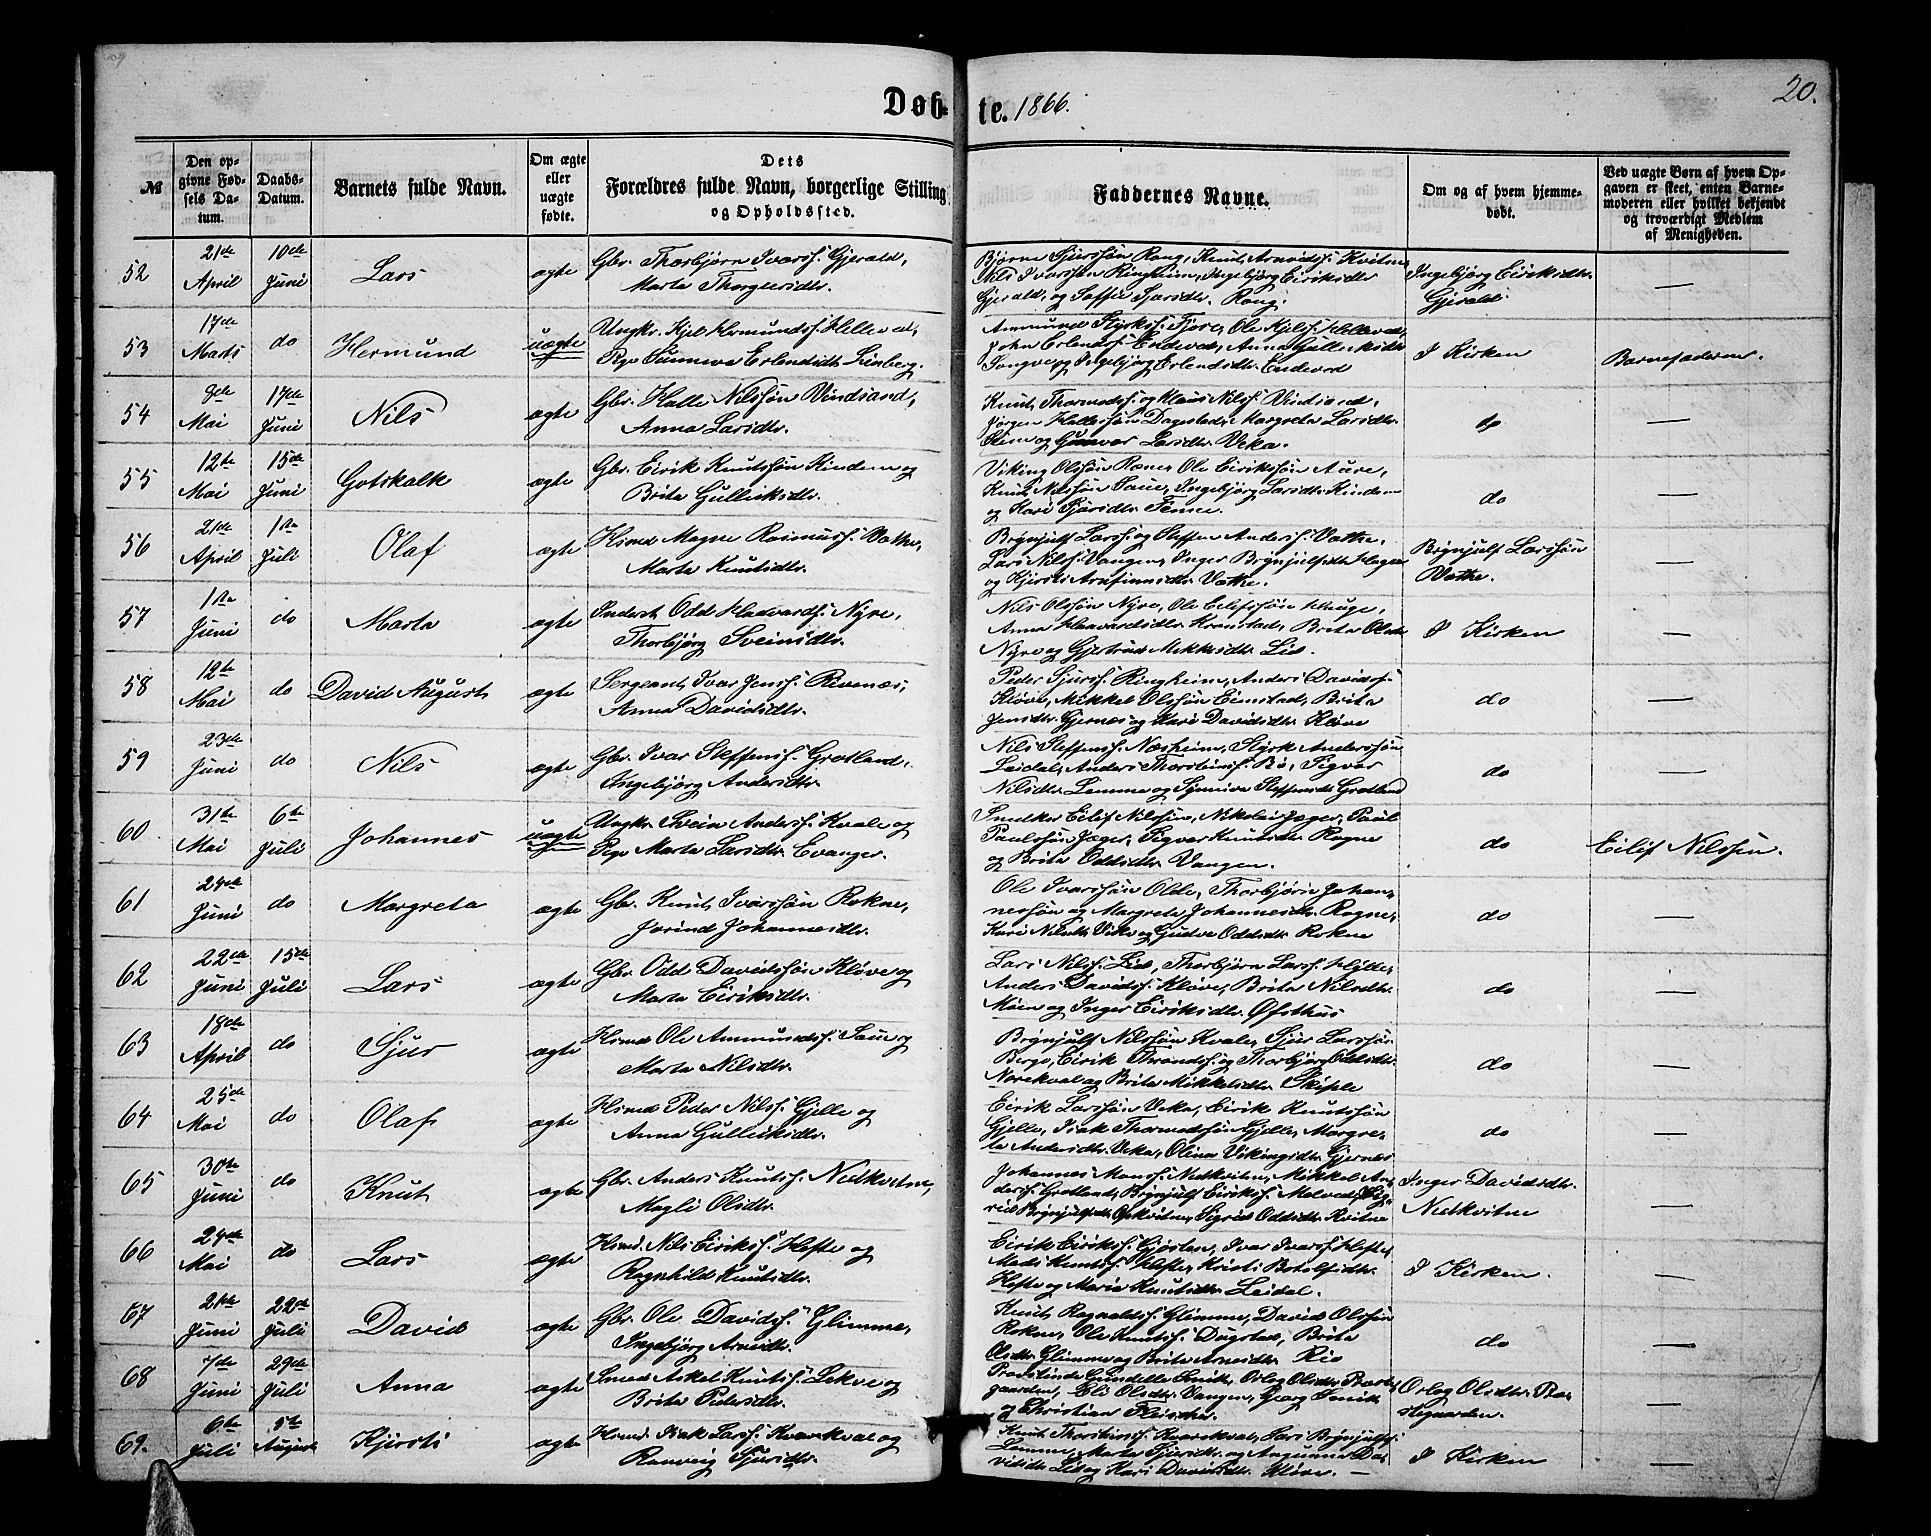 Døb-
te. 1866.
20.
№
Den opgivne Fødsels Datum.
Daabs-Datum.
Barnets fulde Navn.
Om ægte eller uægte fødte.
Dets Forældres fulde Navn, borgerlige Stilling og Opholdssted.
Faddernes Navne.
Om og af hvem hjemmedøbt.
Ved uægte Børn af hvem Opgaven er skeet, enten Barnemoderen eller hvilket bekjendt og troværdigt Medlem af Menigheden.
52 21de April 10de Juni Lars ægte
Gbr. Thorbjørn Ivarss. Gjerald,
Marta Thorgersdtr.
Bjørne Sjurssøn Rong, Knut Arnvids. Kvitne,
Nils Ivarssøn Ringheim, Ingebjørg Eiriksdtr
Gjerald, og Rong.
Ingebjørg Eiriksdtr.
Gjerald.
—
53 17de Marts do Hermund uægte
Ungkr. Kjel Hermundss. Helleved,
Pge Sunneva Erlendsdtr. Linberg.
Ammund Styrkss. Fjose, Ole Kjelss. Helleved,
John Erlendss. Endeved, Anna Gulleiksdtr
og Ingebjørg Erlendsdtr. Endeved
I Kirken
Barnefaderen
54 Mai 17de Juni Nils ægte
Gbr. Halle Nilssøn Vindsand,
Anna Larsdtr.
Knut og Klaus Nilss. Vindsand,
Jørgen Hallessøn Dagestad, Margreta Larsdtr.
og Gunvor Larsdtr. Veka.
do
—
55 12te Mai 15de Juni Gotskalk ægte
Gbr. Eirik Knutssøn Kindem og
Brita Gulleiksdtr.
Viking Olssøn Røne, Ole Eirikssøn Auve,
Knut Nilssøn Saue, Ingebjørg Larsdtr. Kindem
og Kari Sjursdtr. Fenne.
do
—
56 21de April 1ste Juli Olaf ægte
Hsmd Magne Rasmuss. Væthe,
Marta Knutsdtr.
Brynjulf Larss. og Steffen Anderss. Væthe,
Lars Nilss. Vangen, Inger Brynjulfsdtr Hagen
og Kjersti Arnfinnsdtr. Væthe.
Brynjulf Larssøn
Væthe.
—
57 1ste Juni do Marta ægte
Inderst Odd Havardss. Nyre,
Thorbjørg Sveinsdtr.
Nils Olssøn Nyre, Ole Eilifssøn Hauge,
Anna Havardsdtr. Kronstad, Brita Olsdtr
Nyre og Gjertrud Mikkelsdtr. Lid.
I Kirken
—
58 12te Mai do David August ægte
Sergeant Ivar Jenss. Revenæs,
Anna Davidsdtr.
Peder Sjurss. Ringheim, Anders Davidss.
Kløve, Mikkel Olssøn Eimstad, Brita
Jensdtr. Gjernæs og Kari Davidsdtr. Kløve
do
—
59 23de Juni do Nils ægte
Gbr. Ivar Steffenss. Grotland,
Ingebjørg Andersdtr.
Nils Steffenss. Næsheim, Styrk Anderssøn
Leidal, Anders Thorsteinss. Bø, Sigvor
Nilsdtr. Lemme og Synniva Steffensdtr Grotland
do
—
60 31te Mai 6te Juli Johannes uægte
Ungkr. Svein Anderss. Kvale og
Pge Marta Larsdtr. Evanger.
Snedker Eilif Nilssøn, Nikolai Jæger, Paul
Paulssøn Jæger, Sigvor Knutsdtr Rogne
og Brita Oddsdtr. Vangen.
do
Eilif Nilssøn.
61 24de Juni do Margreta ægte
Gbr. Knut Ivarssøn Rokne,
Jorind Johannesdtr.
Ole Ivarssøn Olde, Thorbjørn Johan-
nessøn og Margreta Johannesdtr. Rogne,
Kari Nilsdtr. Vike og Gudve Oddsdtr. Rokne
do
—
62 22de Juni 15de Juli Lars ægte
Gbr. Odd Davidssøn Kløve og
Marta Eiriksdtr.
Lars Nilss. Lid, Thorbjørn Larss. Hylle,
Anders Davidss. Kløve, Brita Nilsdtr.
Møen og Inger Eiriksdtr. Øfsthus
do
—
63 18de April do Sjur ægte
Hsmd Ole Ammundss. Saue og
Marta Nilsdtr.
Brynjulf Nilssøn Kvale, Sjur Larssøn
Berge, Eirik Throndss. og Thorbjørg Oddsdtr.
Norekval og Brita Mikkelsdtr. Skiple
do
—
64 25de Mai do Olaf ægte
Hsmd Peder Nilss. Gjelle og
Anna Gulleiksdtr.
Eirik Larssøn Veka, Eirik Knutssøn
Gjelle, Isak Thormodssøn Gjelle, Margre-
ta Andersdtr. Veka, Olina Vikingsdtr. Gjernes
do
—
65 30te Juni do Knut ægte
Gbr. Anders Knutss. Nedkvitne,
Magli Olsdtr.
Johannes Monss. Nedkvitne, Mikkel An-
derss. Grotland, Brynjulf Eirikss. Melved, Sig-
rid Brynjulfsdtr. Opkvitne, Sigrid Oddsdtr. Kvitne
Inger Davidsdtr.
Nedkvitne
—
66 24de Mai do Lars ægte
Hsmd. Nils Eirikss. Hefte og
Ragnhild Knutsdtr.
Eirik Eirikss. Gjøsten, Ivar Ivarss. Hefte,
Mads Knutss. Hefte, Kristi Botolfsdtr.
Hefte og Maria Knutsdtr. Leidal.
I Kirken.
—
67 21de Juni 22de Juli David ægte
Gbr. Ole Davidss. Glimme,
Ingebjørg Arnvidtr.
Knut Ragnvaldss. Glimme, David Olssøn
Rokne, Ole Knutss. Dugstad, Brita
Olsdtr. Glimme og Brita Arneidtr. Rio
do
—
68 7de Juni 29de Juli Anna ægte
Smed Askel Knutss. Lekve og
Brita Pedersdtr.
Provstinde Gundelle Smitt, Orlog Olsdtr. Præste-
gaarden, Olsdtr. Vangen, Georg Smitt
og Christian Fleischer.
Orlog Olsdtr. Præ-
stegaarden.
—
69. 6te Juli 5te August Kjersti ægte
Hsmd. Isak Larss. Kvarekval og
Ranveig Sjursdtr.
Knut Thorsteinss. Kvarekval, Lars Brynjulfs.
Lemme, Marta Sjursdtr. og Angunna Da-
vidsdtr. Lid og Kari Davidsdtr. Kløve. —
I Kirken
—